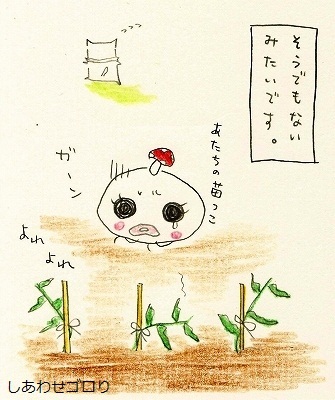 そうでもない
みたいです。
あたちの苗っこ
ガーン
よれ
よれ
しあわせゴロり